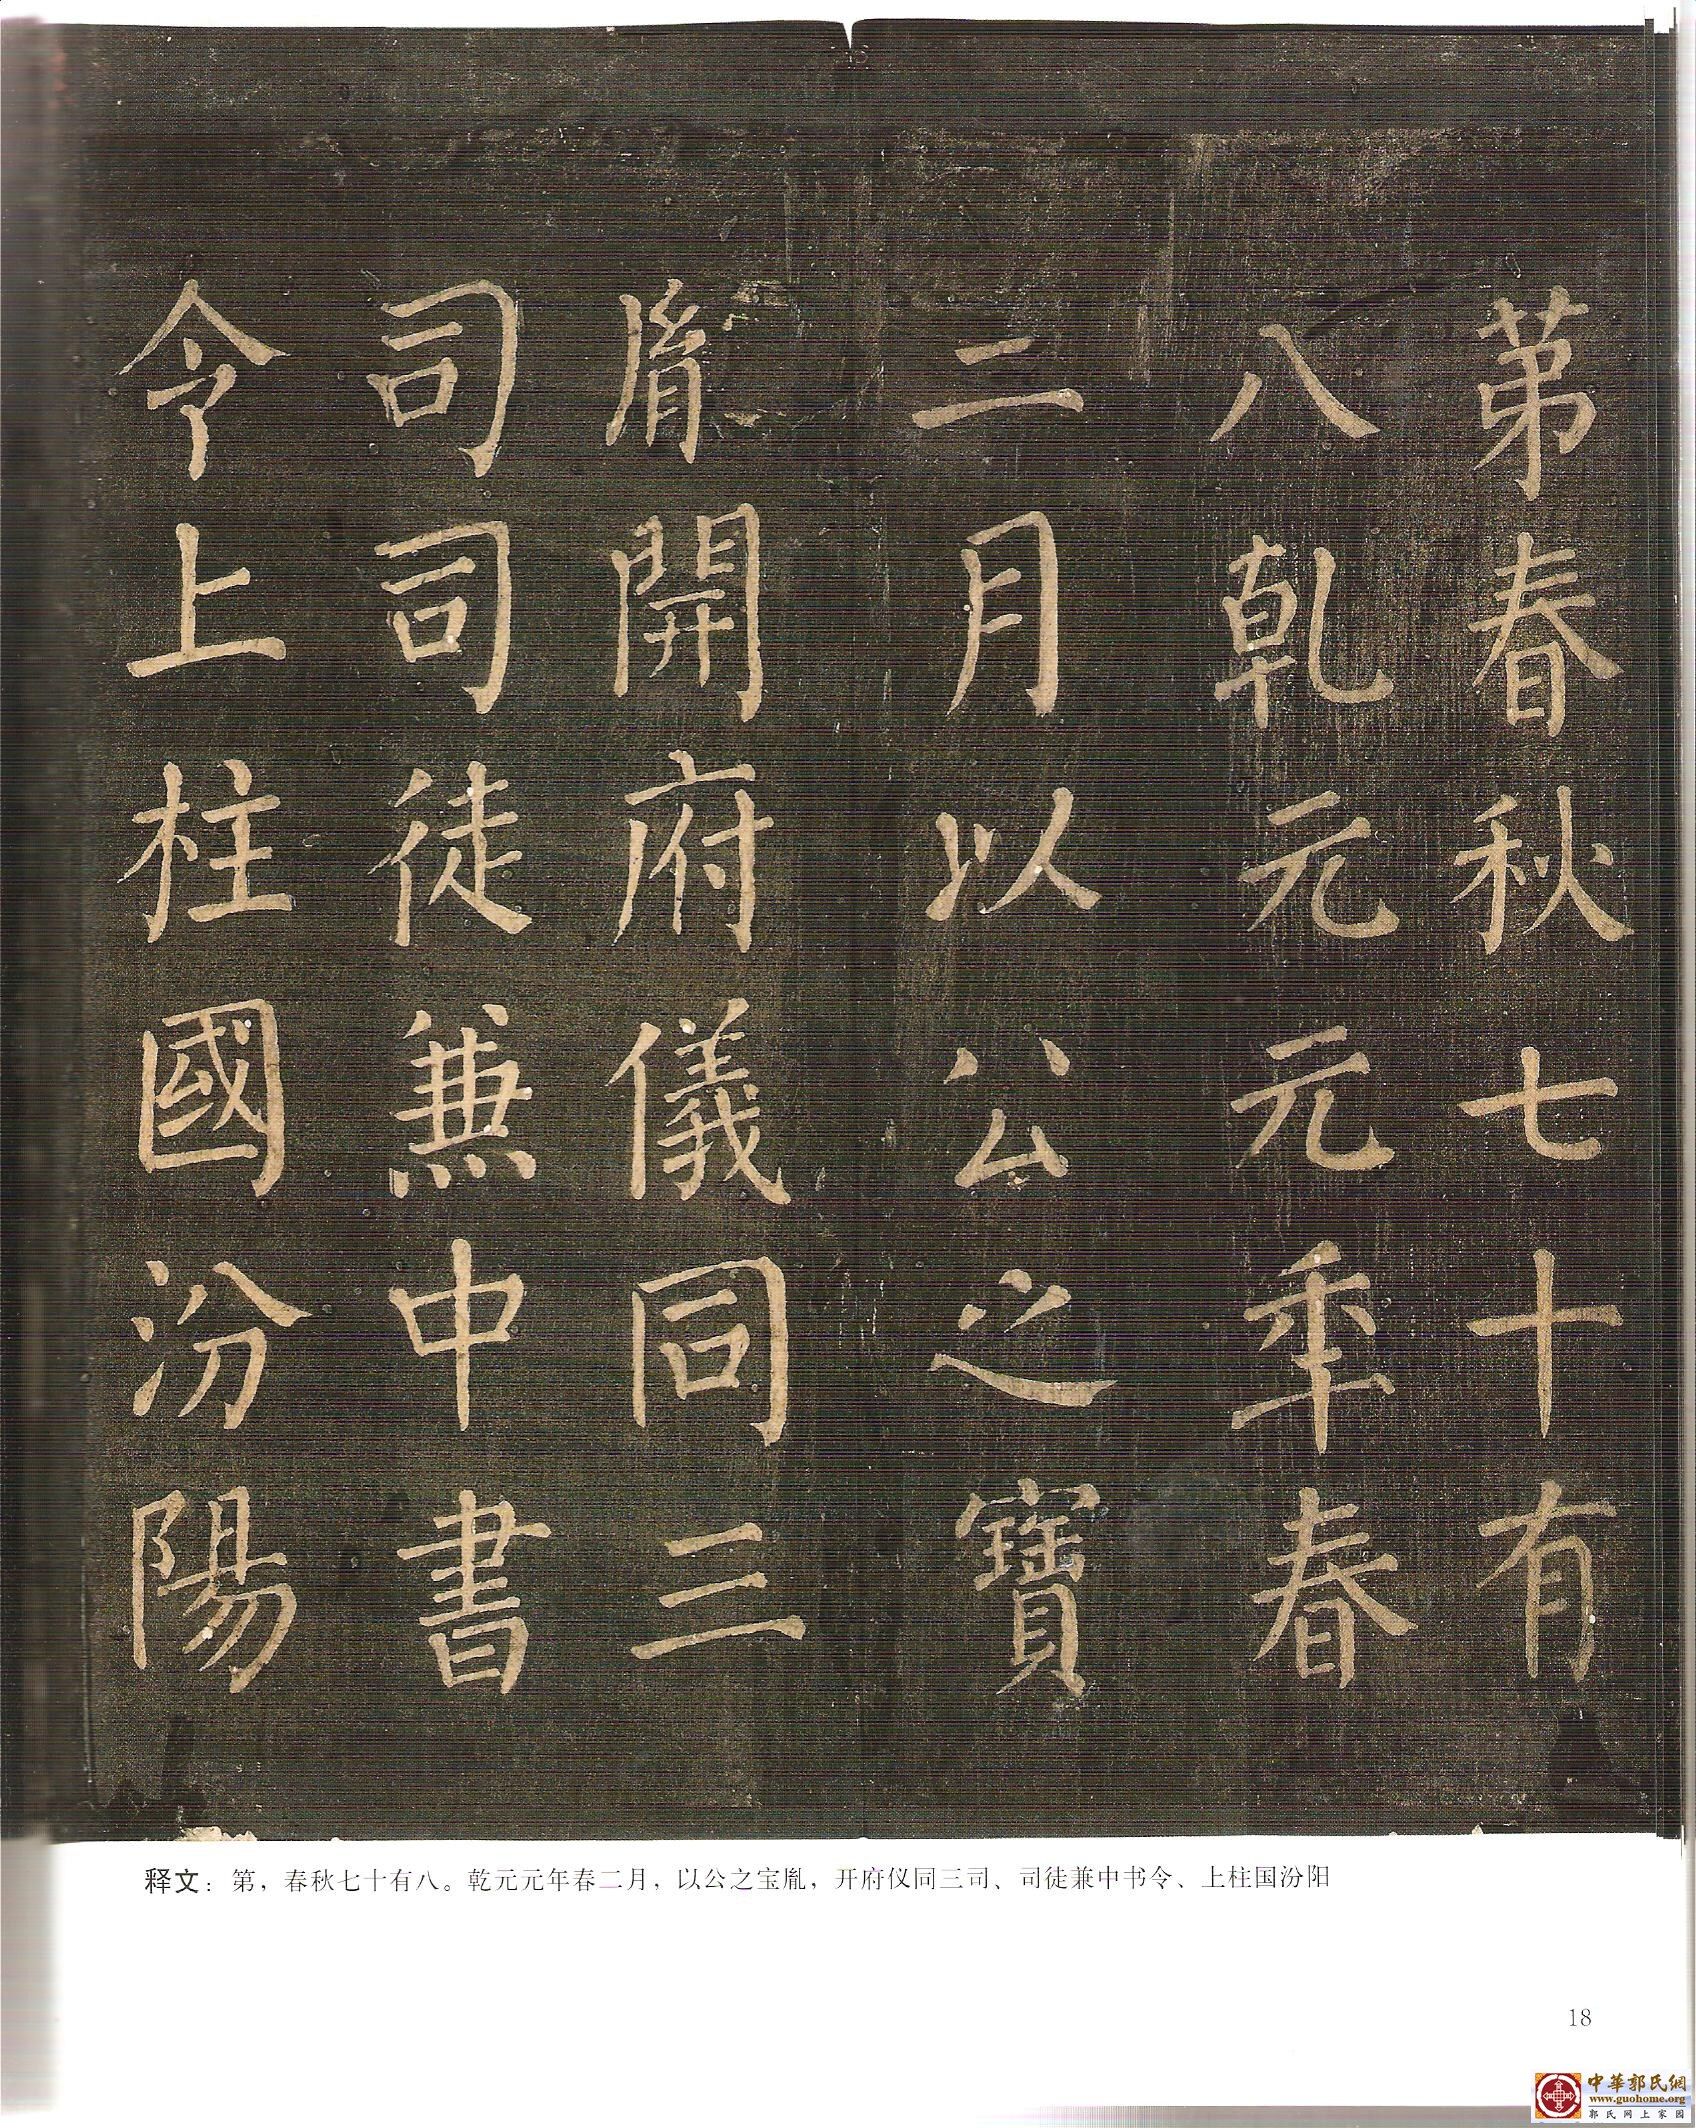 第春秋七十有
八乾元元年春
二月以公之寶
胤開府儀同三
司司徒兼中書
令上柱國汾陽
释文：第，春秋七十有八。乾元元年春二月，以公之宝胤，开府仪同三司、司徒兼中书令、上柱国汾阳
18
中華郭氏網
www.guohome.org
郭氏网上家园